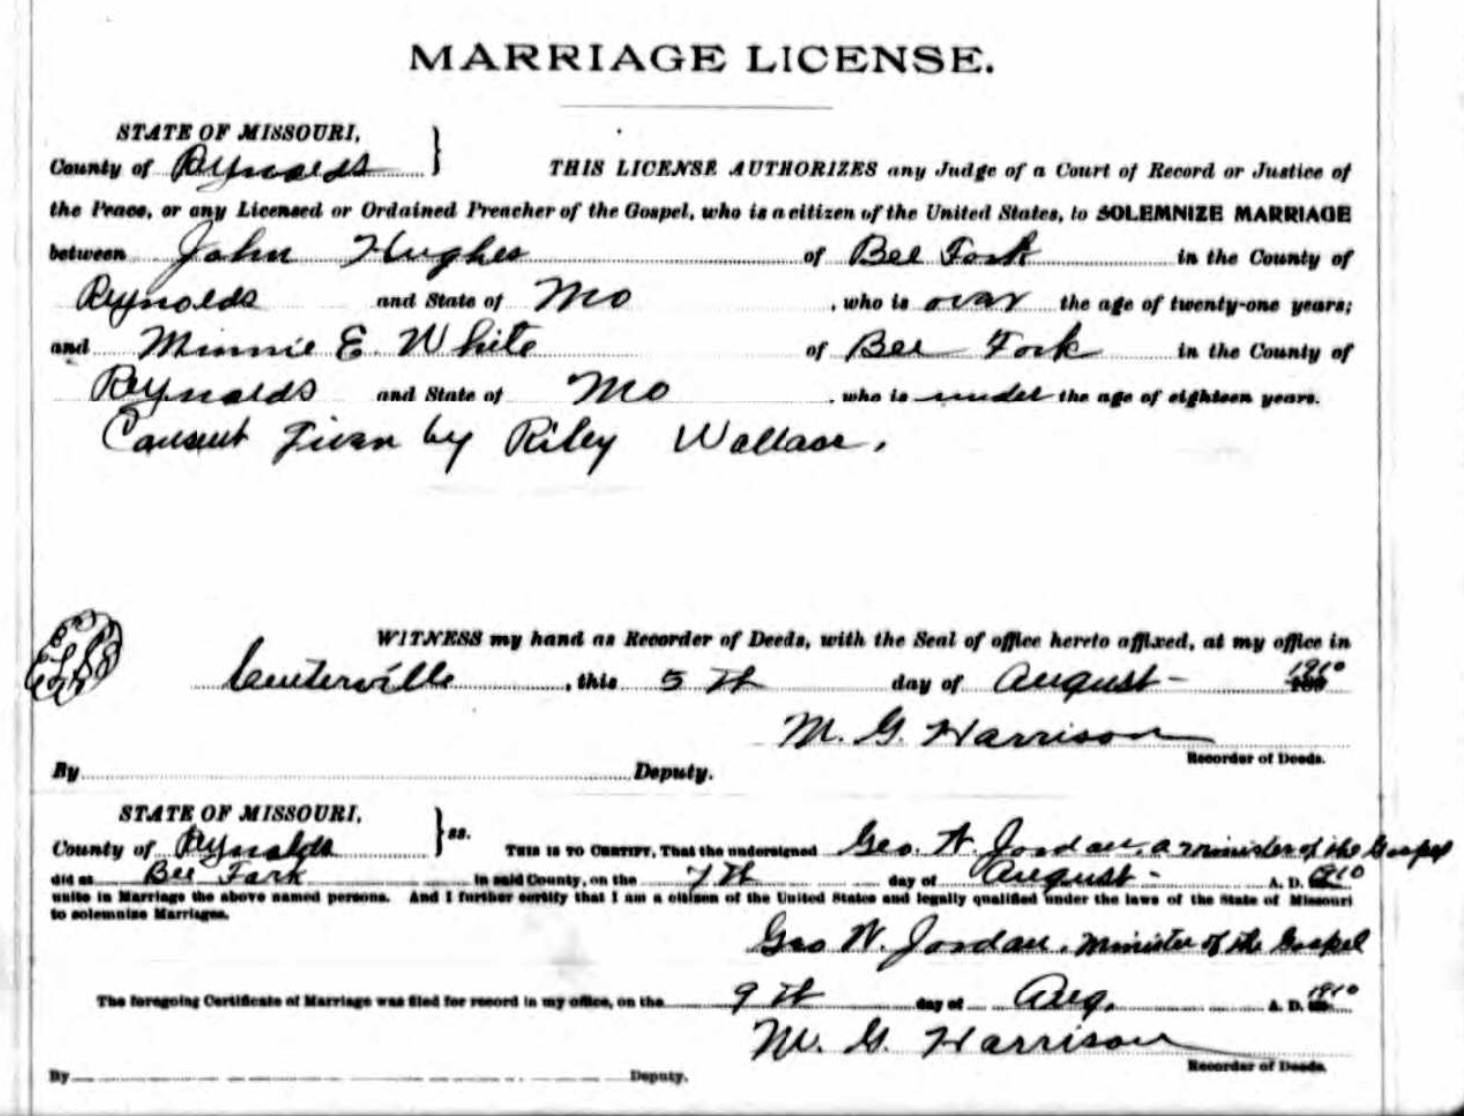 MARRIAGE LICENSE.
STATE OF MISSOURI,
County of Reynolds } THIS LICENSE AUTHORIZES any Judge of a Court of Record or Justice of
the Peace, or any Licensed or Ordained Preacher of the Gospel, who is a citizen of the United States, to SOLEMNIZE MARRIAGE
between John Hughes of Bee Fork in the County of
Reynolds and State of Mo , who is over the age of twenty-one years;
and Minnie E. White of Bee Fork in the County of
Reynolds and State of Mo , who is under the age of eighteen years.
Consent Given by Riley Wallace.
WITNESS my hand as Recorder of Deeds, with the Seal of office hereto affixed, at my office in
Centerville , this 5th day of August - 1910
M. G. Harrison
Recorder of Deeds.
By Deputy.
STATE OF MISSOURI,
County of Reynolds } ss. THIS IS TO CERTIFY, That the undersigned Geo. W. Jordan, a minister of the Gospel
did at Bee Fork in said County, on the 7th day of August - A. D. 1910
unite in Marriage the above named persons. And I further certify that I am a citizen of the United States and legally qualified under the laws of the State of Missouri
to solemnize Marriages.
Geo W. Jordan. Minister of the Gospel
The foregoing Certificate of Marriage was filed for record in my office, on the 9th day of Aug. A. D. 1910
M. G. Harrison
Recorder of Deeds.
By Deputy.